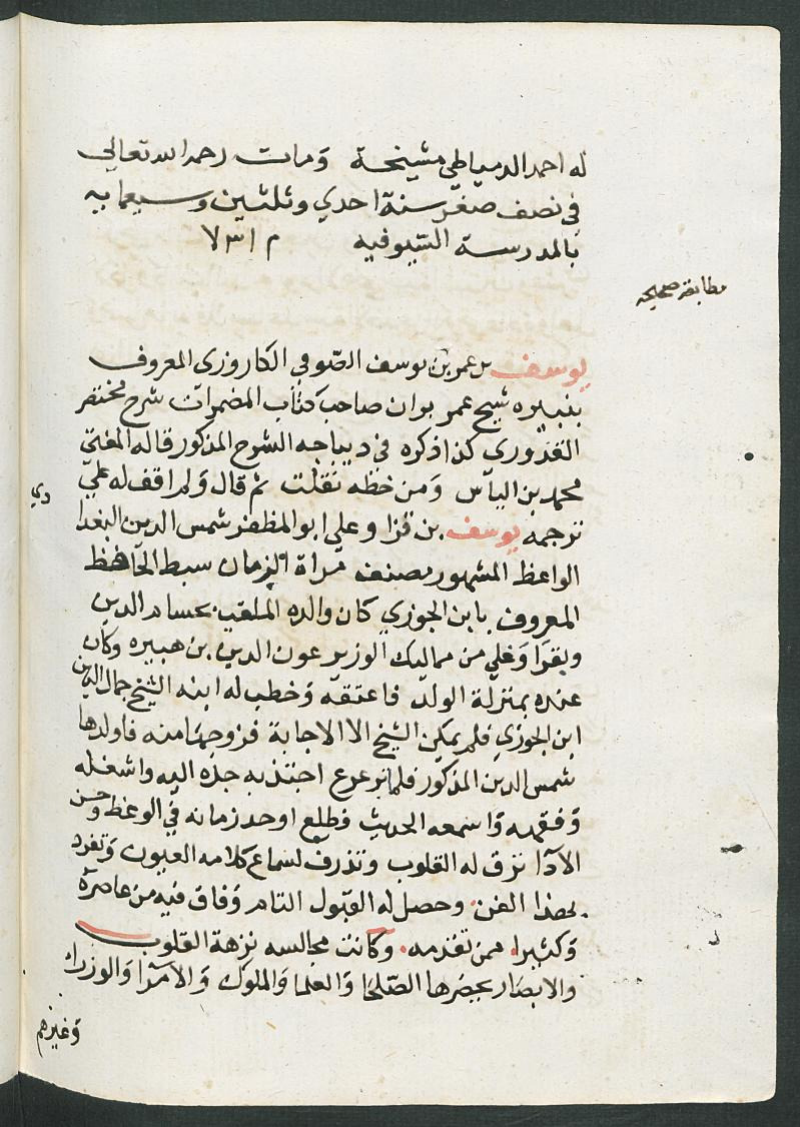 له احمد الدمياطي مشيخة ومات رحمه الله تعالى
في نصف صفر سنة احدي وثلثين وسبعمايه
بالمدرسة السيوفيه م ٧٣١
مطابقه صحيحه
يوسف بن عمر بن يوسف الصوفي الكاروزي المعروف
بنبيره شيخ عمر بوان صاحب كتاب المضمرات شرح مختصر
القدوري كذا ذكره في ديباجه الشرح المذكور قاله المفتي
محمد بن الياس ومن خطه نقلت ثم قال ولم اقف له علي
ترجمه يوسف بن قزا وعلي ابو المظفر شمس الدين البغدا
دي
الواعظ المشهور مصنف مراة الزمان سبط الحافظ
المعروف بابن الجوزي كان والده الملقب بحسام الدين
ويقرا وغلي من مماليك الوزير عون الدين بن هبيره وكان
عنده بمنزلة الولد فاعتقه وخطب له ابنه الشيخ جمال الدين
ابن الجوزي فلم يمكن الشيخ الا الاجابة فزوجها منه فاولدها
شمس الدين المذكور فلما ترعرع اجتذبه جده اليه واشغله
وفقهه واسمعه الحديث فطلع اوحد زمانه في الوعظ وحسن
الآدا ترق له القلوب وتذرف لسماع كلامه العيون وتفرد
بهذا الفن وحصل له القبول التام وفاق فيه من عاصره
وكثيرا ممن تقدمه وكانت مجالسه نزهة القلوب
والابصار يحضرها الصلحا والعلما والملوك والامرا والوزراء
وغيرهم